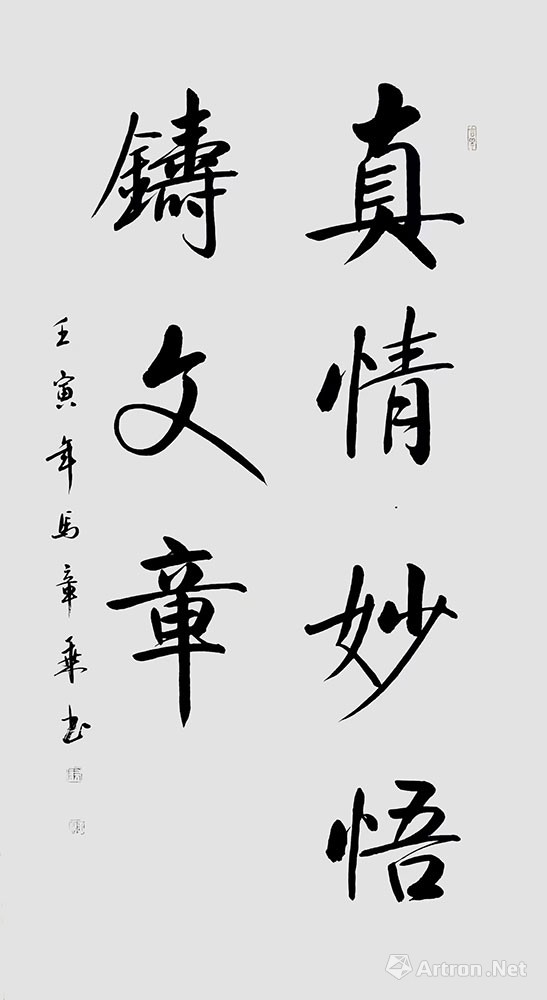 真情妙悟
鑄文章
壬寅年馬章乘书
Artron.Net